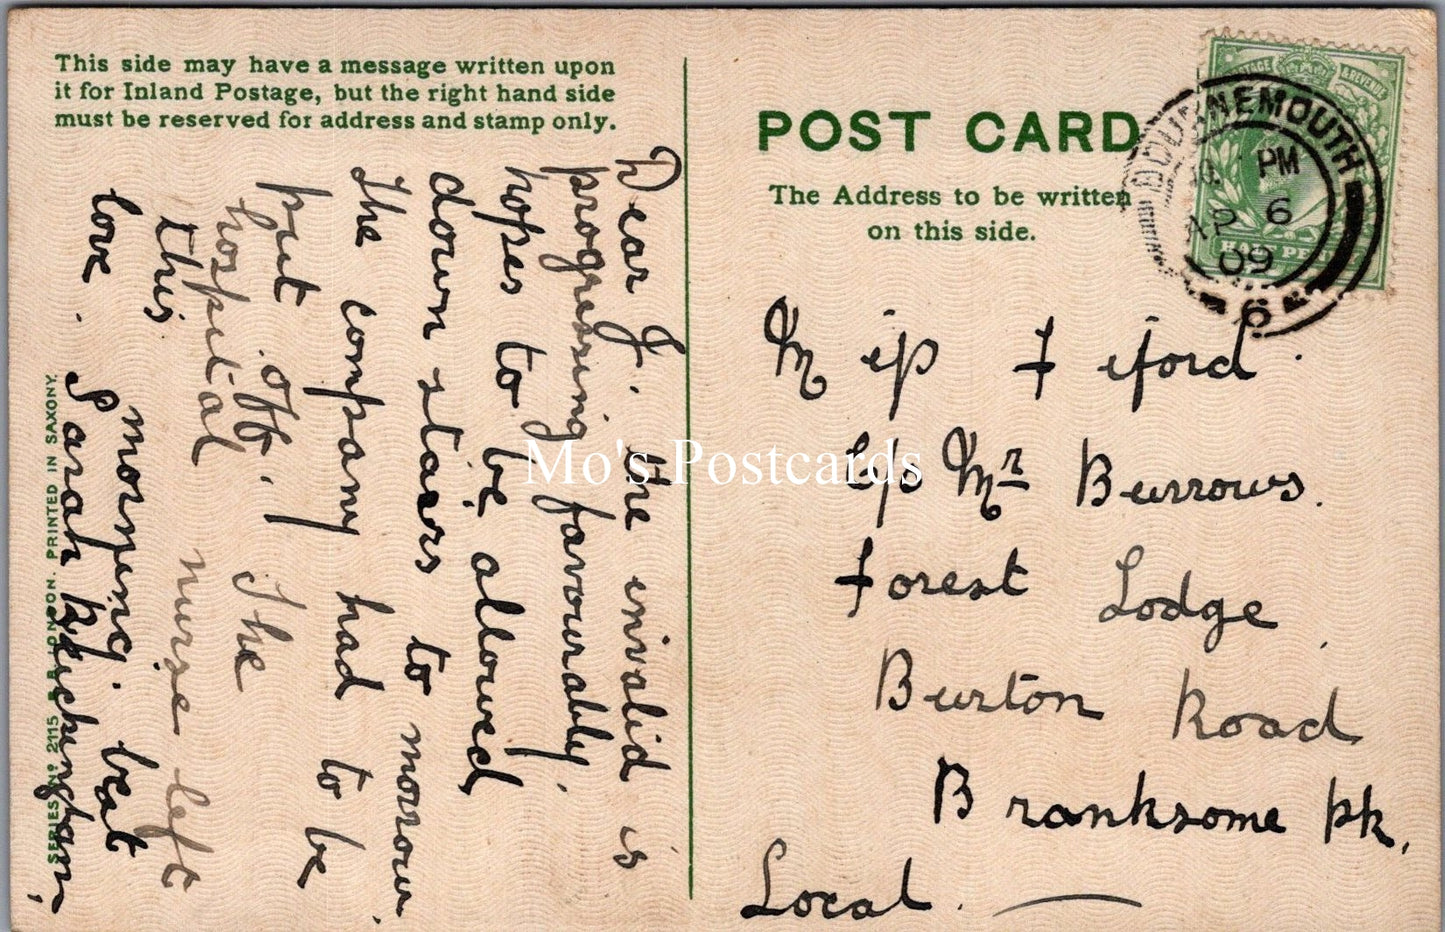 This side may have a message written upon
it for Inland Postage, but the right hand side
must be reserved for address and stamp only.
POST CARD
The Address to be written
on this side.
POSTAGE & REVENUE
HALF PENNY
BOURNEMOUTH
PM
AP 6
09
6
Dear J. the invalid is
progressing favourably.
hopes to be allowed
down stairs to morrow.
The company had to be
put off. The
hospital nurse left
this morning. best
love. Sarah
Miss F
c/o Mr Burrows.
Forest Lodge
Burton Road
Branksome Pk.
Local.
SERIES No 2115 LONDON. PRINTED IN SAXONY.
Mo's Postcards